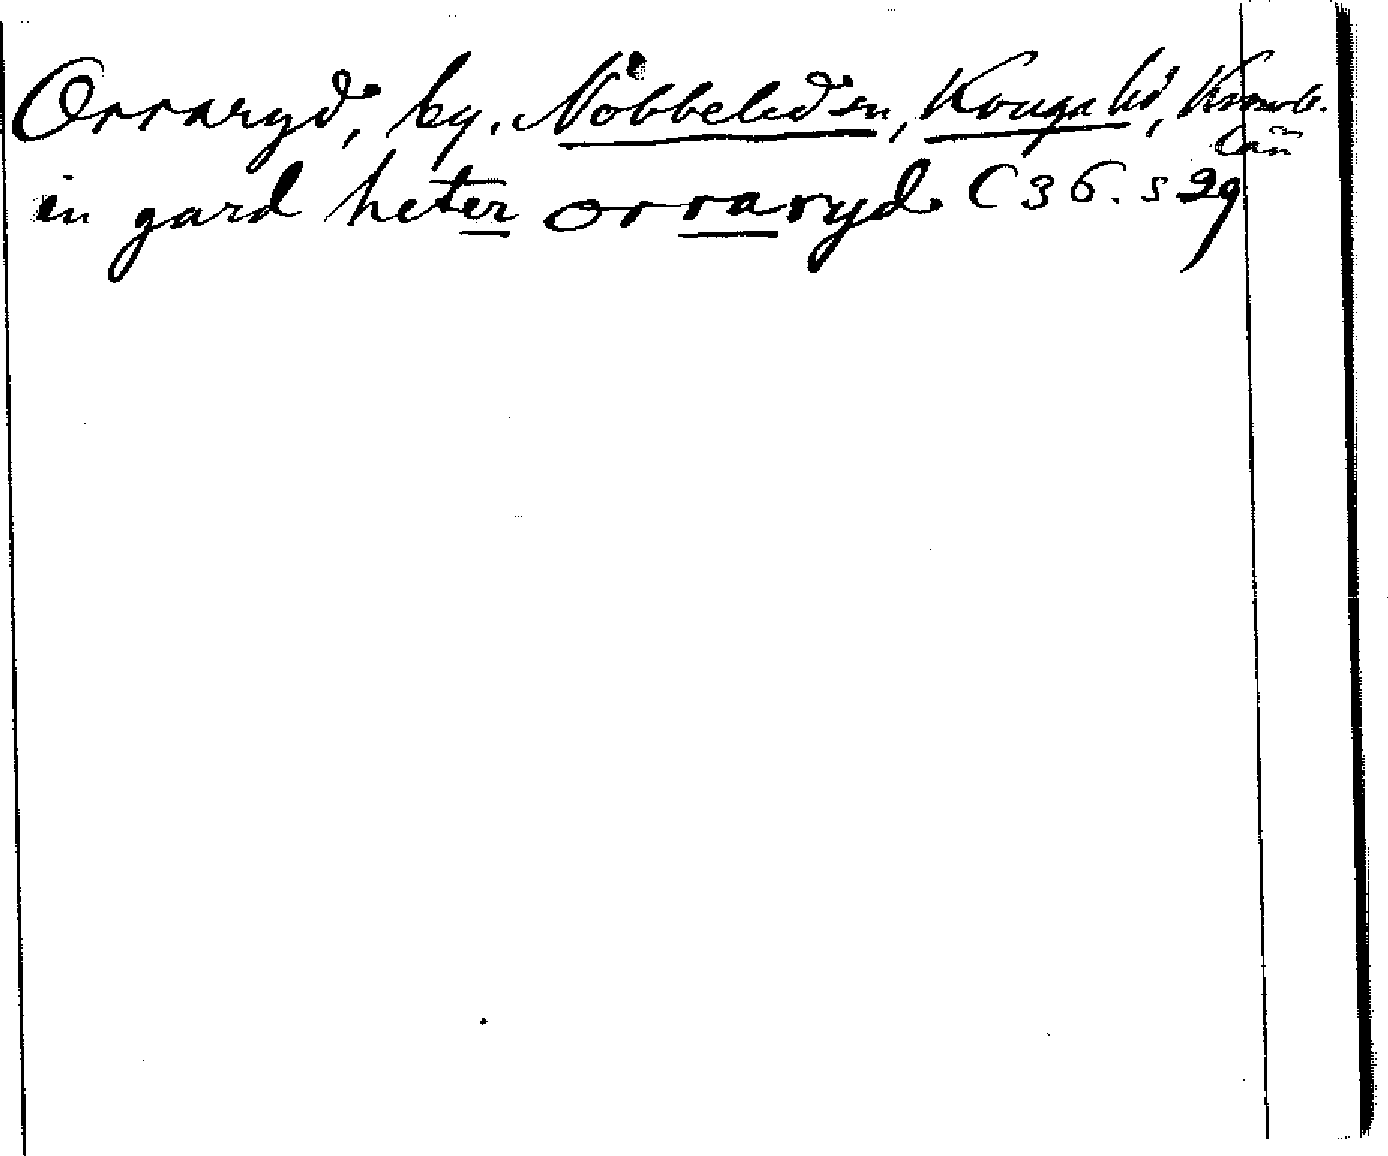 Orraryd, by. Nöbbeled sn, Konga hd, Kronob.
län
en gard heter orraryd C 36. s 29